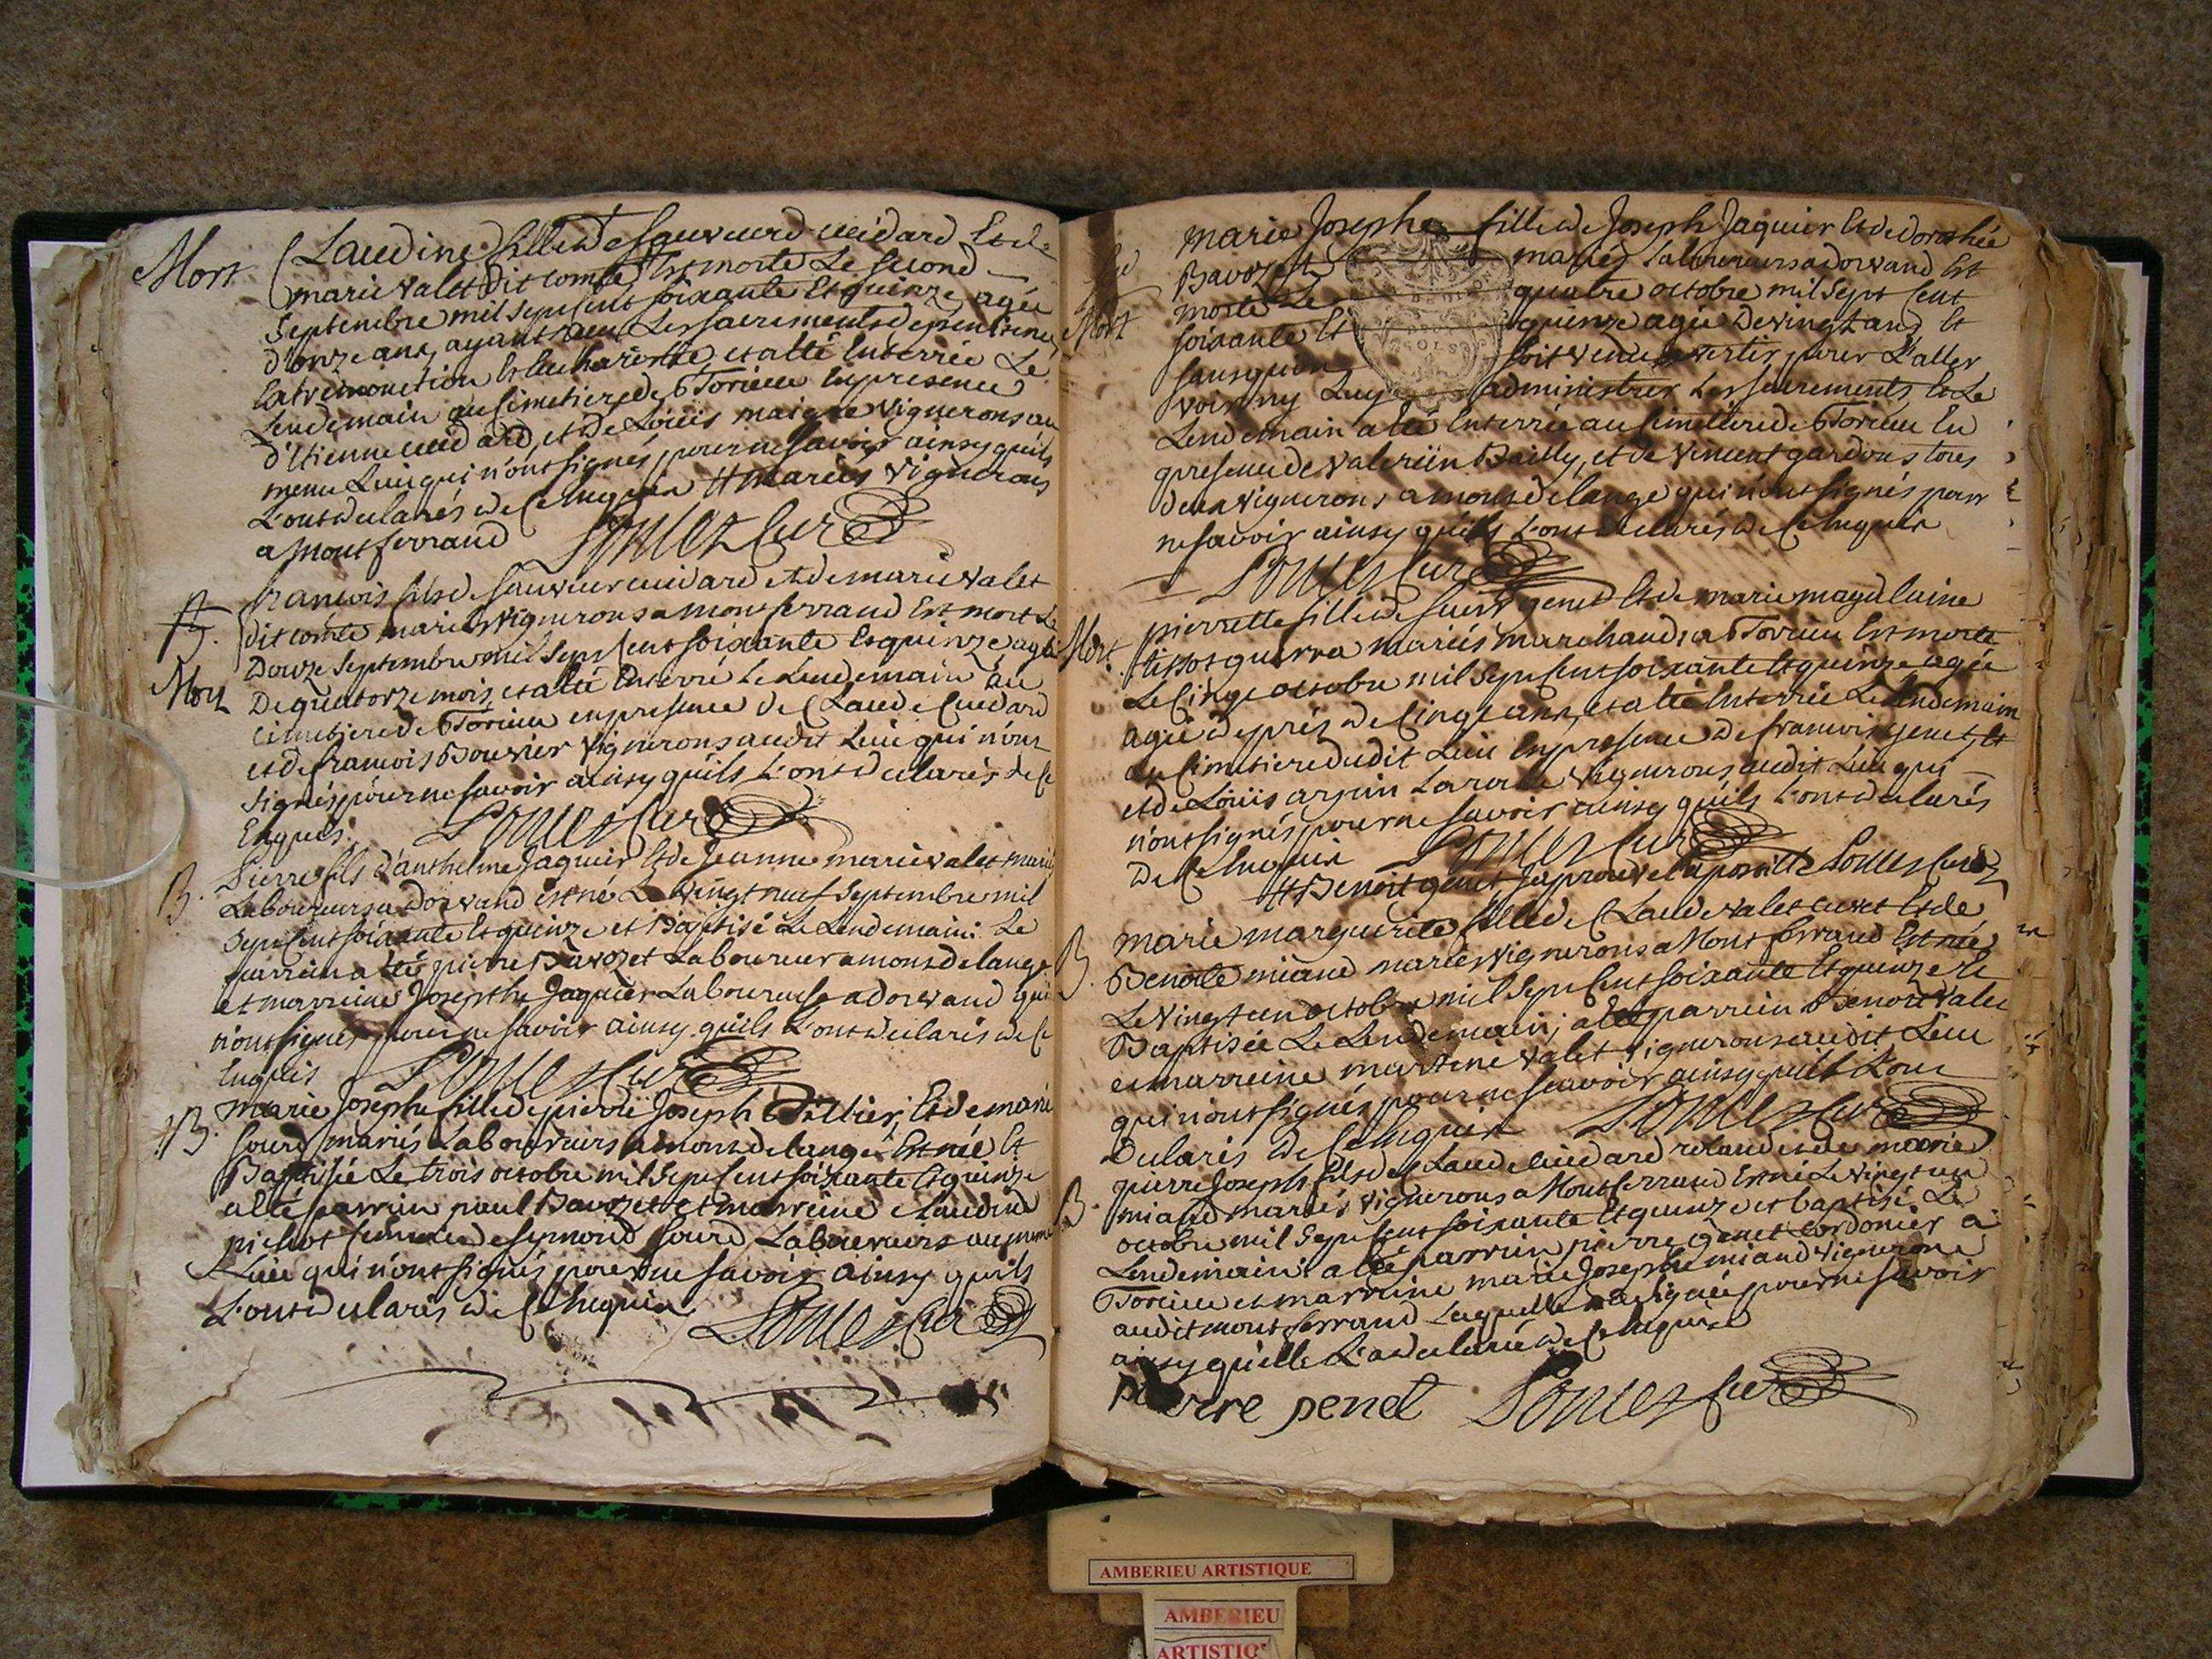 Mort
Claudine fille de Sauveur cuidard Et de
marie valet dit comte Est morte Le second
Septembre mil sept Cent soixante Et quinze agée
d'onze ans, ayant reçu Les sacrements de penitence
Extremonction Et Eucharistie, et a été Enterrée Le
Lendemain au Cimetiere de Torcieu En presence
d'Etienne cuidard, et de Loüis maigre vignerons au
meme Lieu qui n'ont signés pour ne savoir ainsy qu'ils
L'ont declarés de Ce Enquis # mariés vignerons
a Montferrand
francois fils de sauveur cuidard et de marie valet
dit comte mariés vignerons a montferrand Est mort Le
Douze Septembre mil sept Cent soixante Et quinze agé
Mort
De quatorze mois, et a été Enterré Le Lendemain au
Cimetiere de Torcieu en presence de Claude Cuidard
et de francois Bouvier vignerons audit Lieu qui n'ont
signés pour ne savoir ainsy qu'ils L'ont declarés de Ce
Enquis.
B.
Pierre fils d'anthelme Jaquier Et de Jeanne marie valet mariés
Laboureurs a dorvand est né Le vingt neuf Septembre mil
Sept Cent soixante Et quinze et Baptisé Le Lendemain: Le
parrain a été pierre Bavozet Laboureur a mont de lange
et marraine Josephe Jaquier Laboureuse a dorvand qui
n'ont signés pour ne savoir ainsy qu'ils L'ont declarés de Ce
Enquis
B.
marie Josephe fille de pierre Joseph Tillier, Et de marie
sourd mariés Laboureurs a mont de lange Est née Et
Baptisée Le trois octobre mil sept Cent soixante Et quinze
a été parrain paul Bavozet et marraine claudine
pichot femme de symond sourd Laboureurs au meme
Lieu qui n'ont signés pour ne savoir ainsy qu'ils
L'ont declarés de Ce Enquis
marie Josephe fille de Joseph Jaquier Et de dorothée
Bavozet mariés Laboureurs a dorvand Est
Mort
morte Le quatre octobre mil sept Cent
soixante Et quinze agée De vingt ans Et
sans qu'on soit venu avertir pour L'aller
voir ny Luy administrer Les sacrements, Et Le
Lendemain a été Enterrée au Cimetiere de Torcieu En
presence de valerien Bailly, et de vincent gardons tous
deux vignerons a mont de lange qui n'ont signés pour
ne savoir ainsy qu'ils L'ont declarés de Ce Enquis
Mort
pierrette fille de feu # genet Et de marie magdelaine
tissot guerra mariés marchands a Torcieu Est morte
Le Cinq octobre mil sept Cent soixante Et quinze agée
agée de près de Cinq ans, et a été Enterrée Le Lendemain
au Cimetiere dudit Lieu En presence de francois genet, Et
et de Loüis arpin vignerons audit Lieu qui
n'ont signés pour ne savoir ainsy qu'ils L'ont declarés
De Ce Enquis
# Benoit genet J'aprouve l'apostille
B.
marie marguerite fille de Claude valet cuvet Et de
Benoite miand mariés vignerons a Montferrand Est née
Le vingt un octobre mil sept Cent soixante Et quinze Et
Baptisée Le Lendemain; a été parrein Benoit valet
et marreine martine valet vignerons audit Lieu
qui n'ont signés pour ne savoir ainsy qu'ils L'ont
Declarés De Ce Enquis
B.
pierre Joseph fils de Claude Cuidard roland et de marie
miand mariés vignerons a Montferrand Est né Le vingt un
octobre mil sept Cent soixante Et quinze et baptisé Le
Lendemain: a été parrein pierre genet Cordonier a
Torcieu et marraine marie Josephe miand vigneronne
audit montferrand Laquelle n'a signée pour ne savoir
ainsy qu'elle L'a declaré de Ce Enquise
AMBERIEU ARTISTIQUE
AMBERIEU